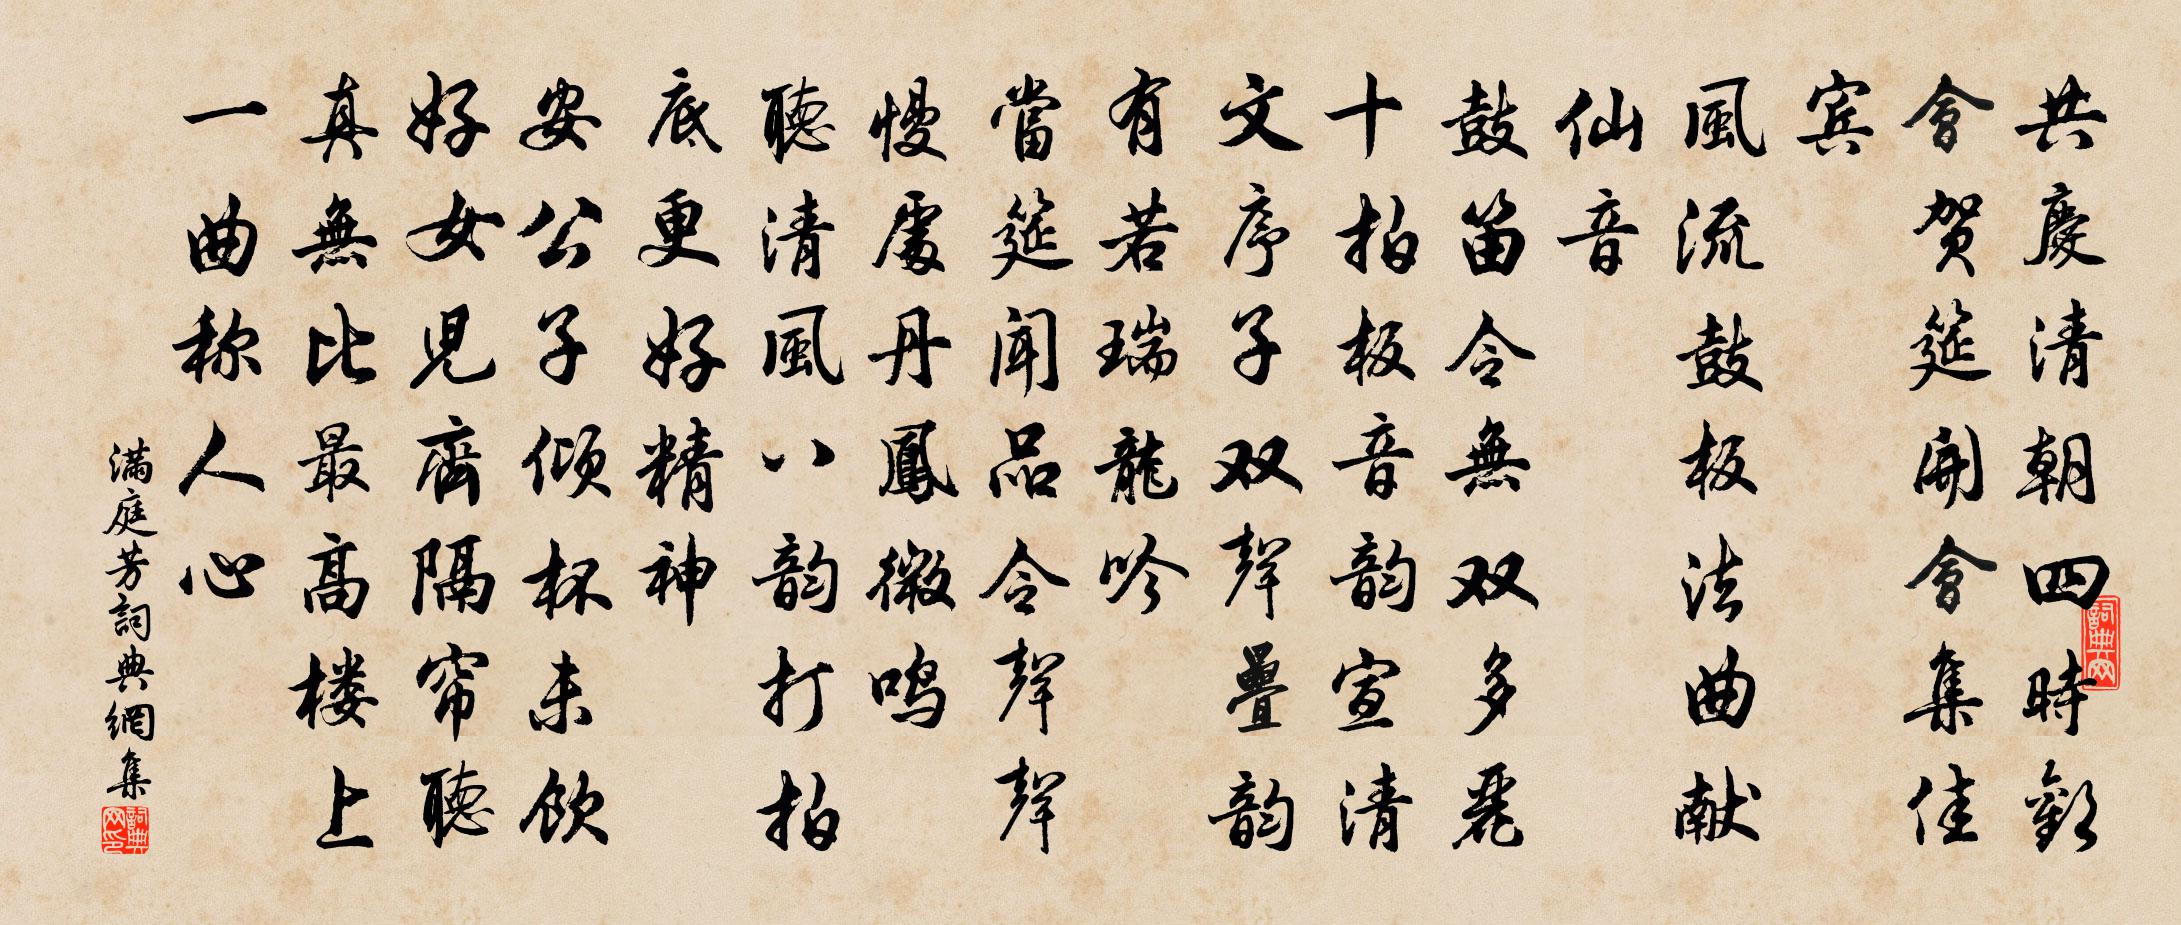 共慶清朝四時歡
會賀筵開會集佳
宾
風流鼓板法曲献
仙音
鼓笛令無双多麗
十拍板音韵宣清
文序子双聲疊韵
有若瑞龍吟
當筵聞品令聲聲
慢處丹鳳微鳴
聽清風八韵打拍
底更好精神
安公子倾杯未飲
好女兒齊隔帘聽
真無比最高楼上
一曲称人心
滿庭芳詞典網集
詞典网
詞典网印